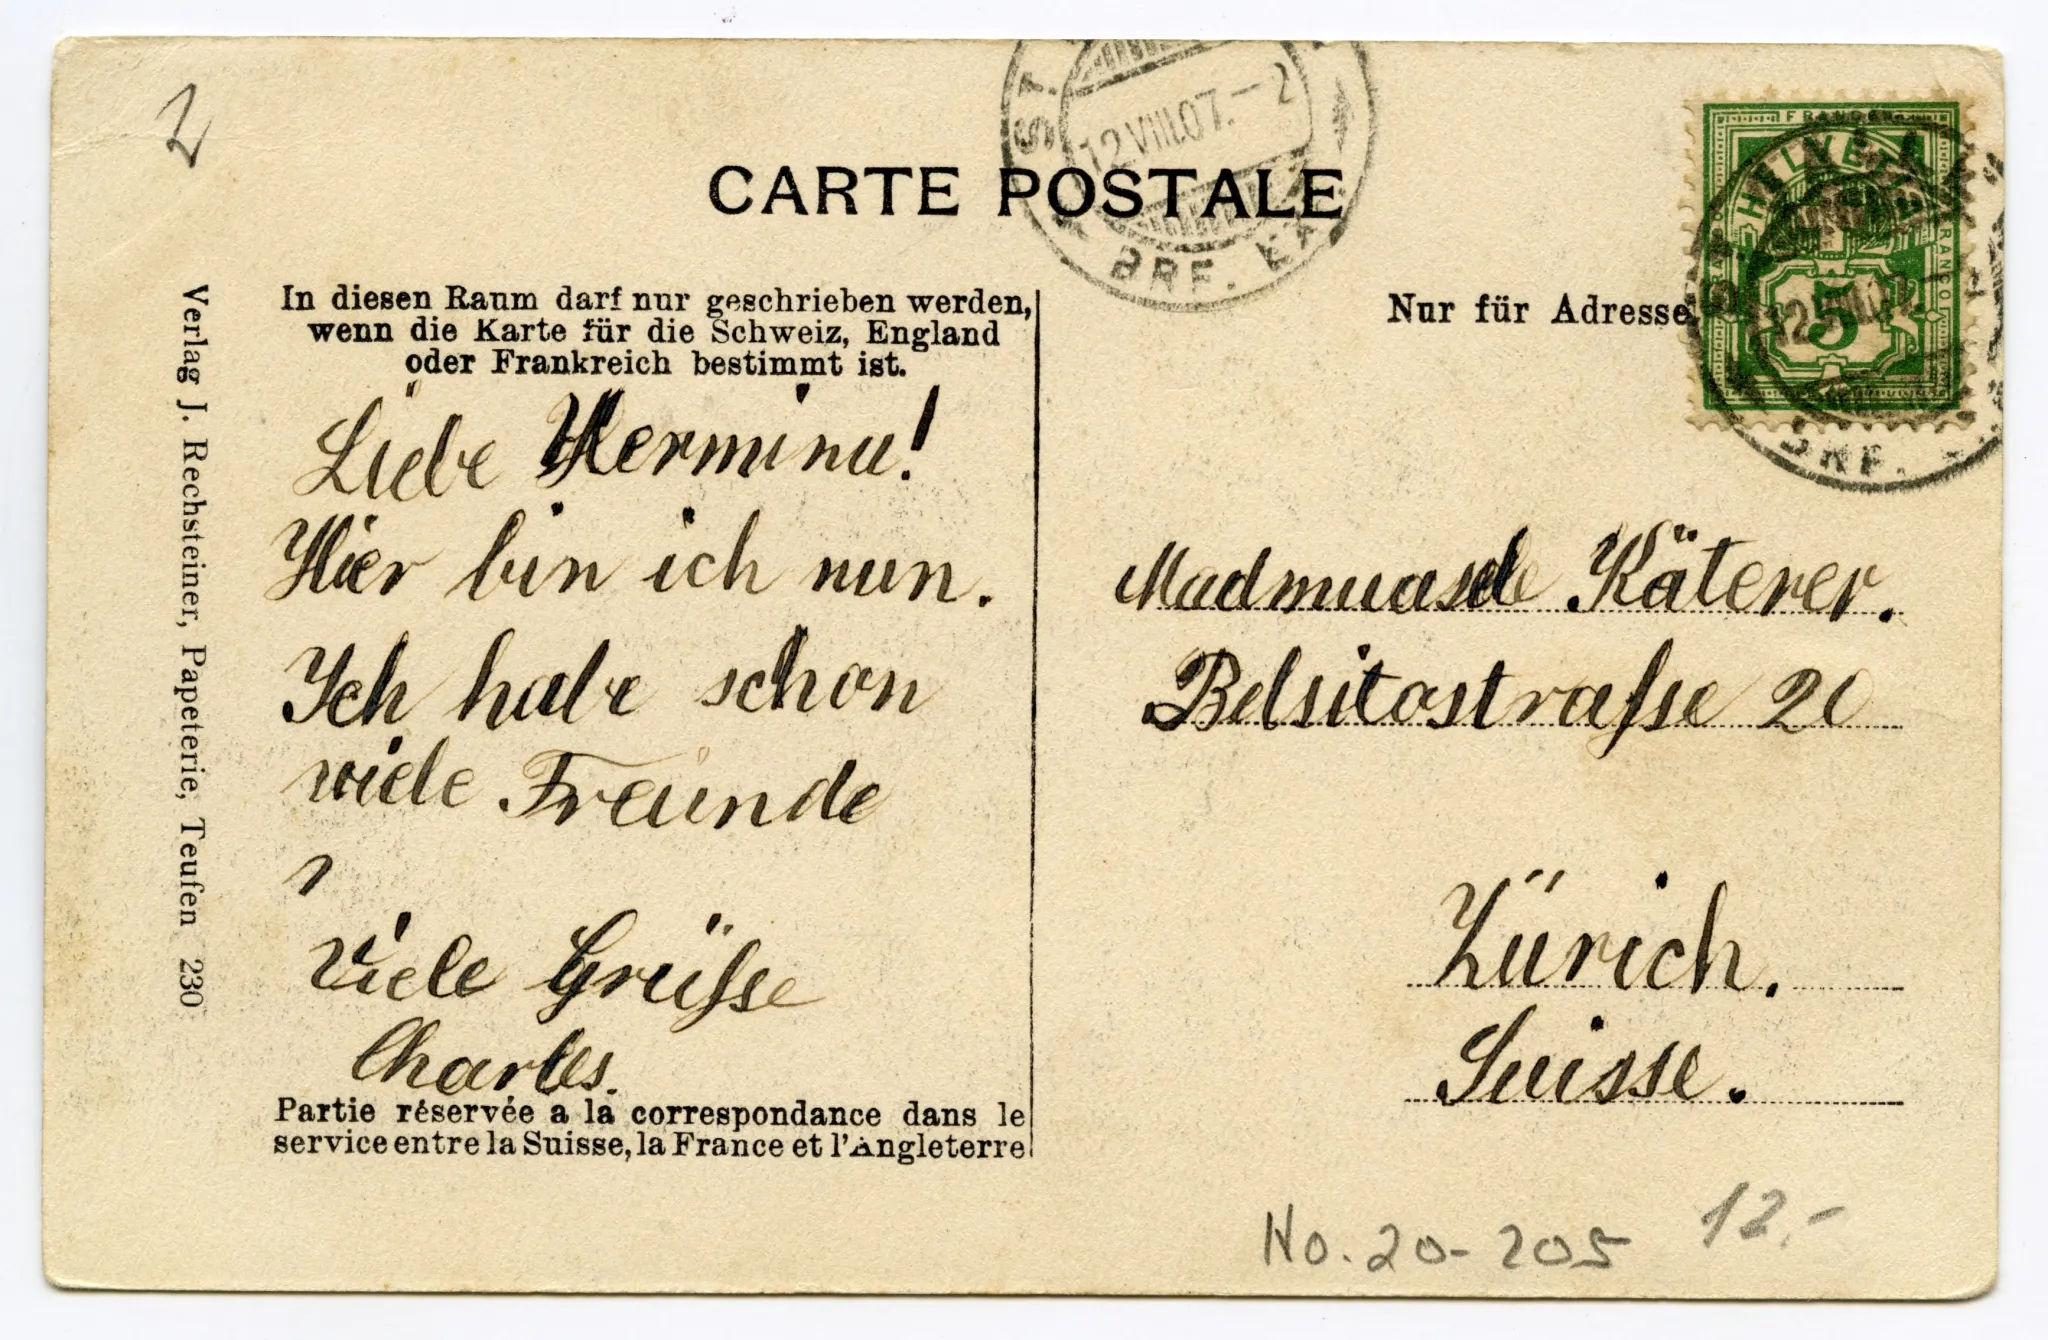 2
CARTE POSTALE
ST.
12.VIII.07.–2
BRF. EX
FRANCO
HELVETIA
FRANCO
5
BRF.
Verlag J. Rechsteiner, Papeterie, Teufen 230
In diesen Raum darf nur geschrieben werden,
wenn die Karte für die Schweiz, England
oder Frankreich bestimmt ist.
Nur für Adresse
Liebe Hermina!
Hier bin ich nun.
Ich habe schon
viele Freunde
Viele Grüsse
Charles.
Partie réservée a la correspondance dans le
service entre la Suisse, la France et l'Angleterre
Madmuasele Käterer.
Belsitostrasse 20
Zürich.
Suisse.
No. 20-205
12.-